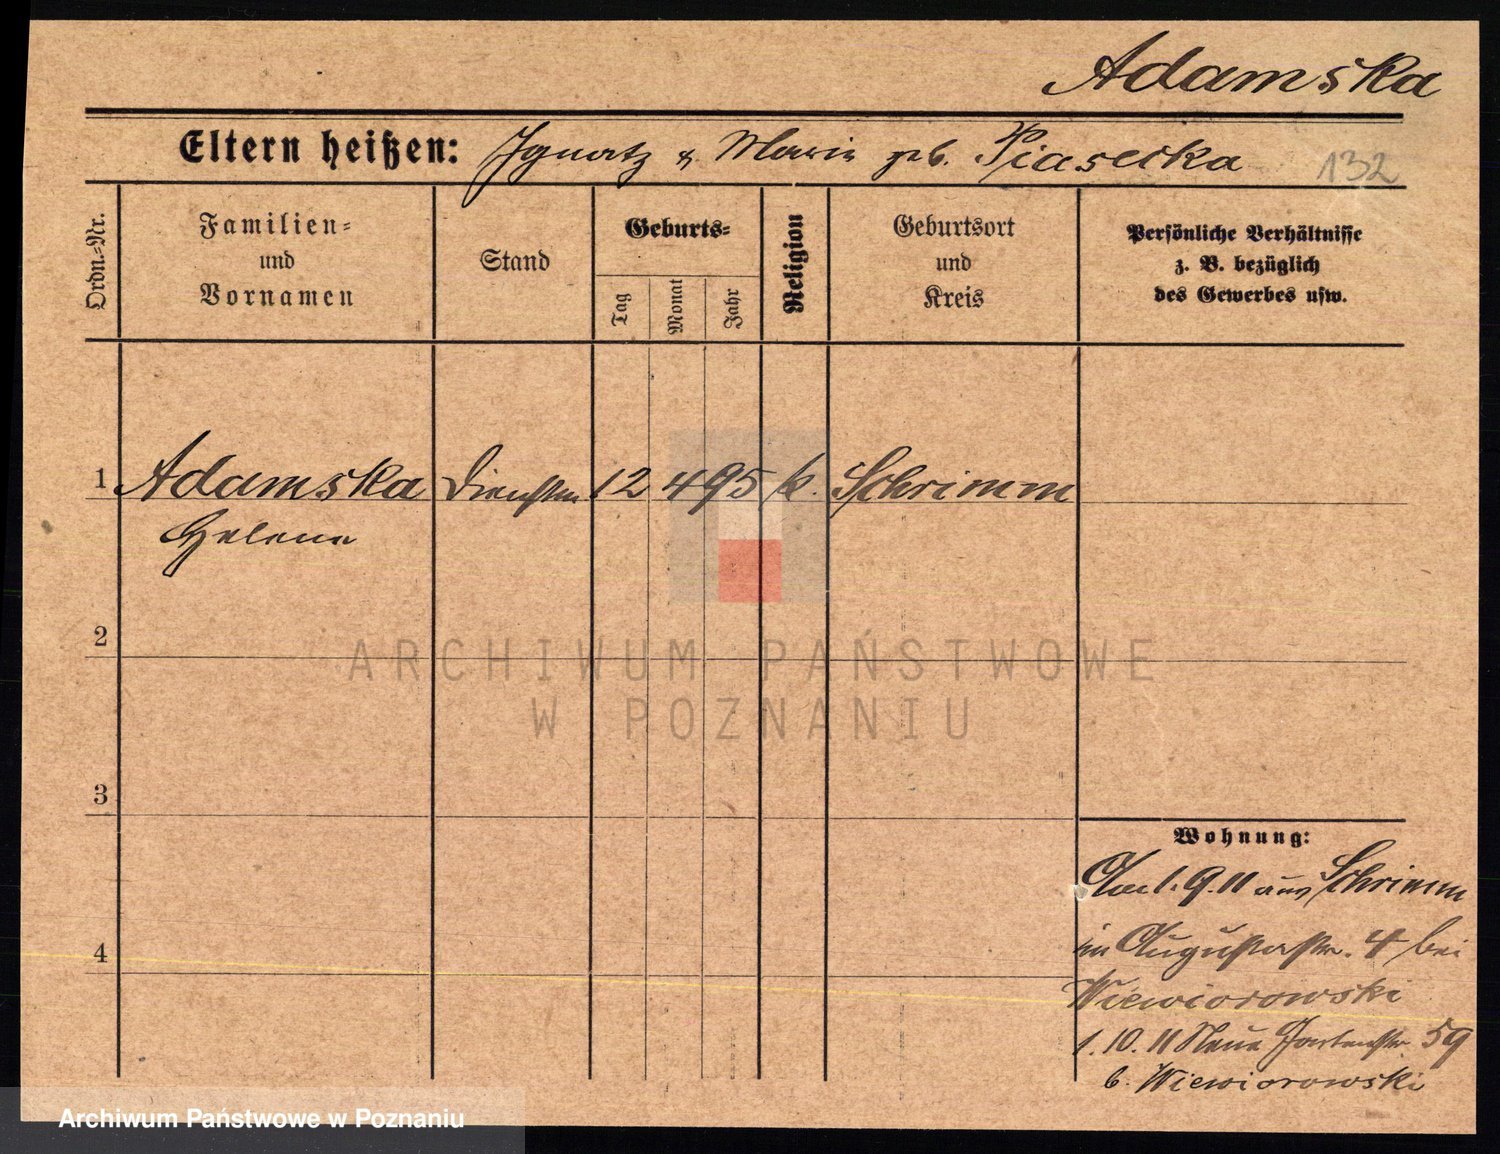 Adamska
Eltern heißen: Ignatz & Marie geb. Piasecka 132
Ordn.-Nr.
Familien- und Vornamen
Stand
Geburts-
Tag
Monat
Jahr
Religion
Geburtsort und Kreis
Persönliche Verhältnisse
z. B. bezüglich
des Gewerbes usw.
1 Adamska 12 4 95 k. Schrimm
Helene
2
3
4
Wohnung:
Am 1. 9. 11 aus Schrimm
in Augustastr. 4 bei
Wiewiorowski
1. 10. 11 Neue Gartenstr. 59
b. Wiewiorowski
ARCHIWUM PAŃSTWOWE
W POZNANIU
Archiwum Państwowe w Poznaniu